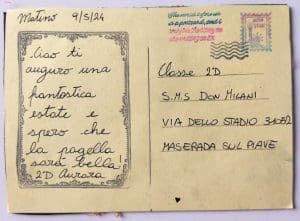 Matino 9/5/24
Ciao ti
auguro una
fantastica
estate e
spero che
la pagella
sarà bella!
2D Aurora
Classe 2D
S.M.S Don Milani
VIA DELLO STADIO
MASERADA SUL PIAVE